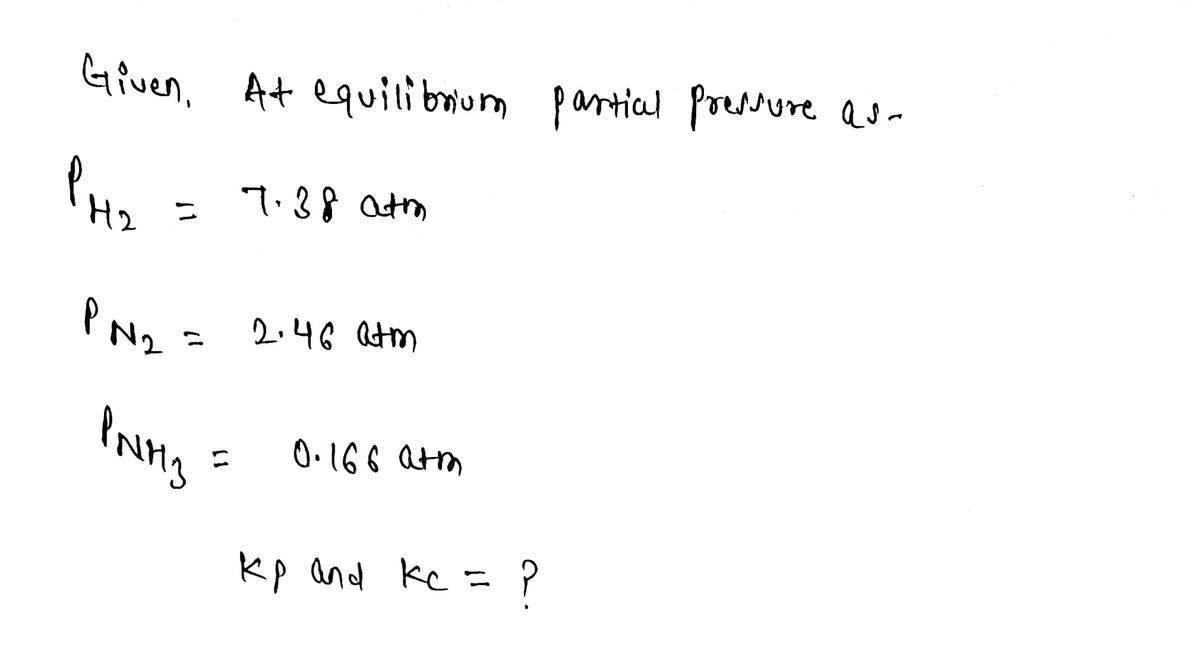 Given, At equilibrium partial pressure as-
P H2 = 7.38 atm
P N2 = 2.46 atm
P NH3 = 0.166 atm
Kp and Kc = ?